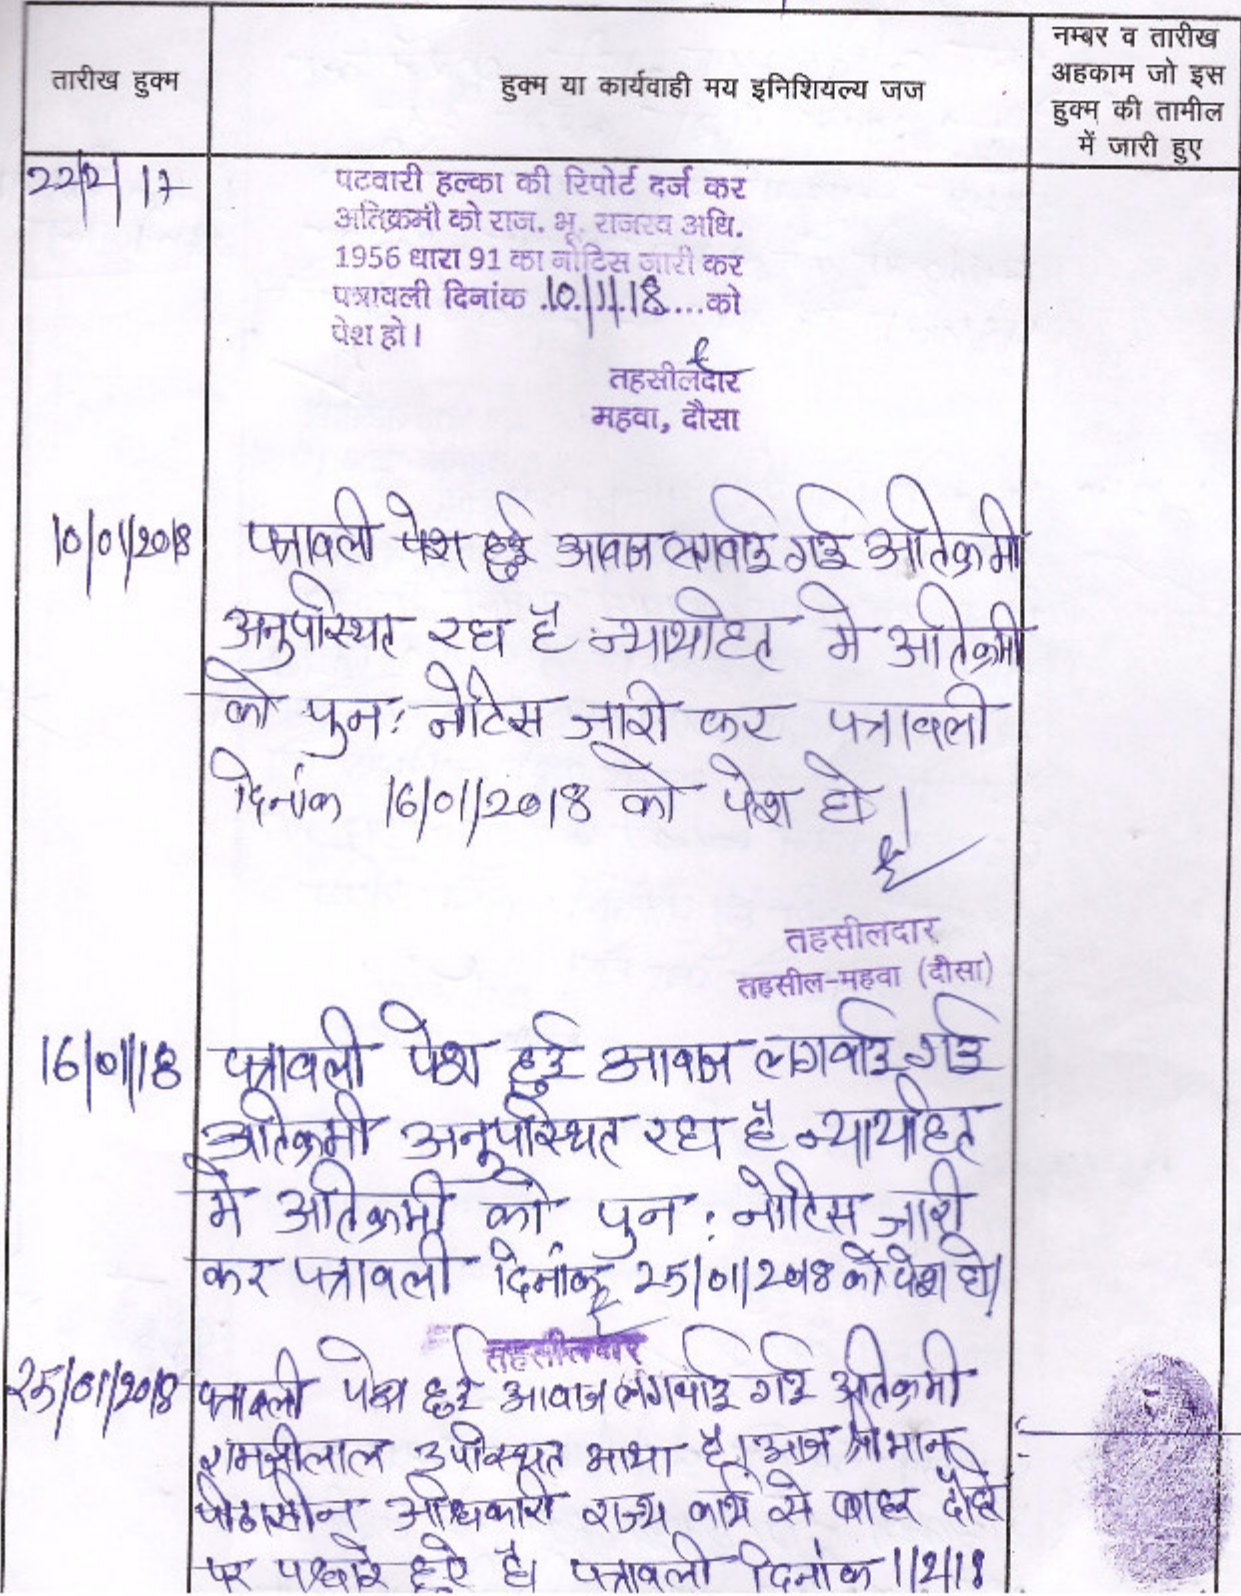 नम्बर व तारीख
तारीख हुक्म हुक्म या कार्यवाही मय इनिशियल्य जज अहकाम जो इस
हुक्म की तामील
में जारी हुए
पटवारी हल्का की रिपोर्ट दर्ज कर
अतिक्रमी को राज. भू. राजस्व अधि.
1956 धारा 91 का नोटिस जारी कर
पत्रावली दिनांक 10/1/18 को
पेश हो।
तहसीलदार
महवा, दौसा
10/01/2018 पत्रावली पेश हुई आवाज लगवाई गई अतिक्रमी
अनुपस्थित रहा है न्यायहित मे अतिक्रमी
को पुनः नोटिस जारी कर पत्रावली
दिनांक 16/01/2018 को पेश हो।
तहसीलदार
तहसील-महवा (दौसा)
16/01/18 पत्रावली पेश हुई आवाज लगवाई गई
अतिक्रमी अनुपस्थित रहा है न्यायहित
मे अतिक्रमी को पुनः नोटिस जारी
कर पत्रावली दिनांक 25/01/2018 को पेश हो।
तहसीलदार
25/01/2018 पत्रावली पेश हुई आवाज लगवाई गई अतिक्रमी
रामजीलाल उपस्थित आया है। आज श्रीमान
पीठासीन अधिकारी राज्य कार्य से बाहर दौरे
पर पधारे हुऐ है। पत्रावली दिनांक 1/2/18